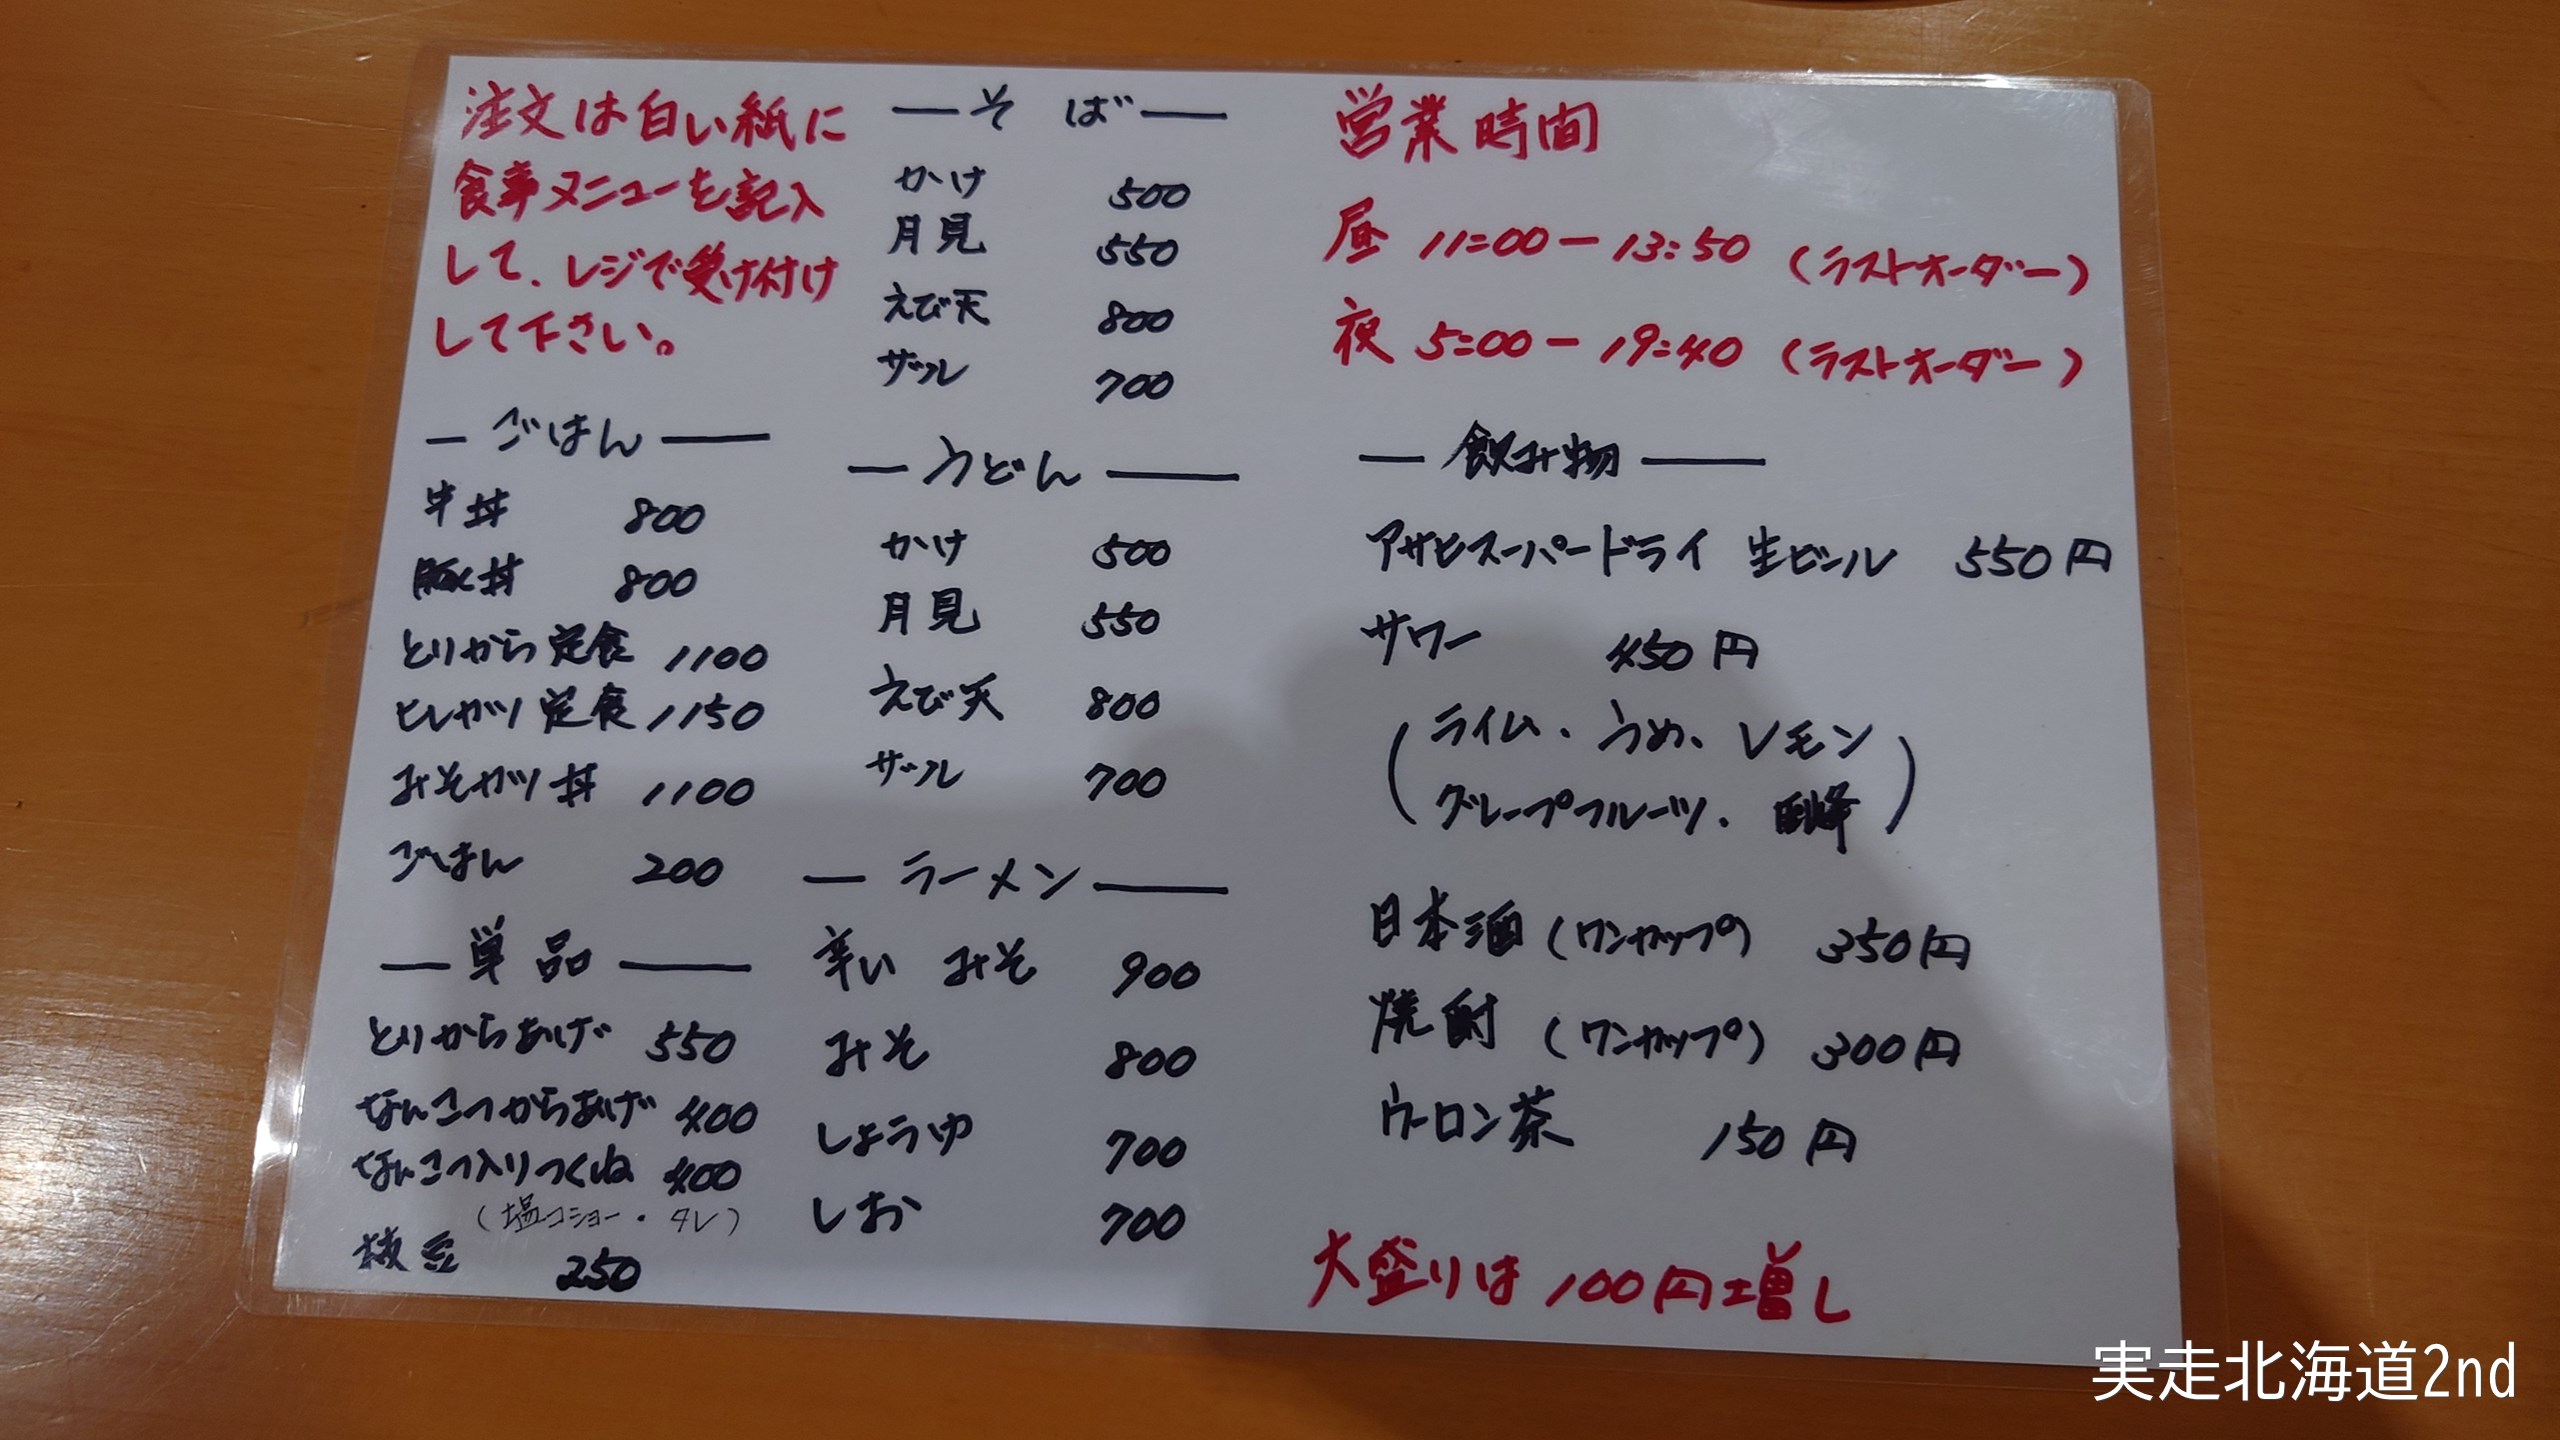 注文は白い紙に
食事メニューを記入
して、レジで受け付け
して下さい。
ーごはんー
牛丼 800
豚丼 800
とりから定食 1100
ヒレカツ定食 1150
みそカツ丼 1100
ごはん 200
ー単品ー
とりからあげ 550
なんこつからあげ 400
なんこつ入りつくね 400
(塩コショー・タレ)
枝豆 250
ーそばー
かけ 500
月見 550
えび天 800
ザル 700
ーうどんー
かけ 500
月見 550
えび天 800
ザル 700
ーラーメンー
辛い みそ 900
みそ 800
しょうゆ 700
しお 700
営業時間
昼 11:00ー13:50 (ラストオーダー)
夜 5:00ー19:40 (ラストオーダー)
ー飲み物ー
アサヒスーパードライ 生ビール 550円
サワー 450円
(ライム、うめ、レモン
グレープフルーツ、巨峰)
日本酒(ワンカップ) 350円
焼酎(ワンカップ) 300円
ウーロン茶 150円
大盛りは100円増し
実走北海道2nd